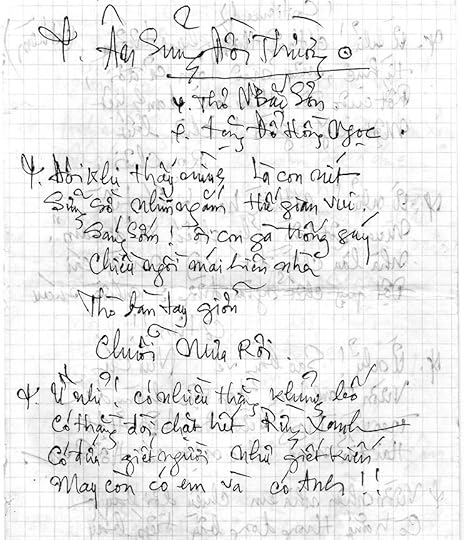 Ân Sủng Đời Thường
Thơ NBắc Sơn
tặng Đỗ Hồng Ngọc.
Đôi khi thấy mình là con nít
Sững sờ nhìn ngắm thế gian vui.
Sáng sớm! Tôi con gà trống gáy
Chiều ngồi mái hiên nhà
Thò bàn tay giỡn
Chuỗi Mưa Rơi.
Ừ nhỉ! có nhiều thằng khùng
Có thằng đòi chặt hết Rừng Xanh
Có đứa giết người như giết kiến
May còn có em và có Anh!!